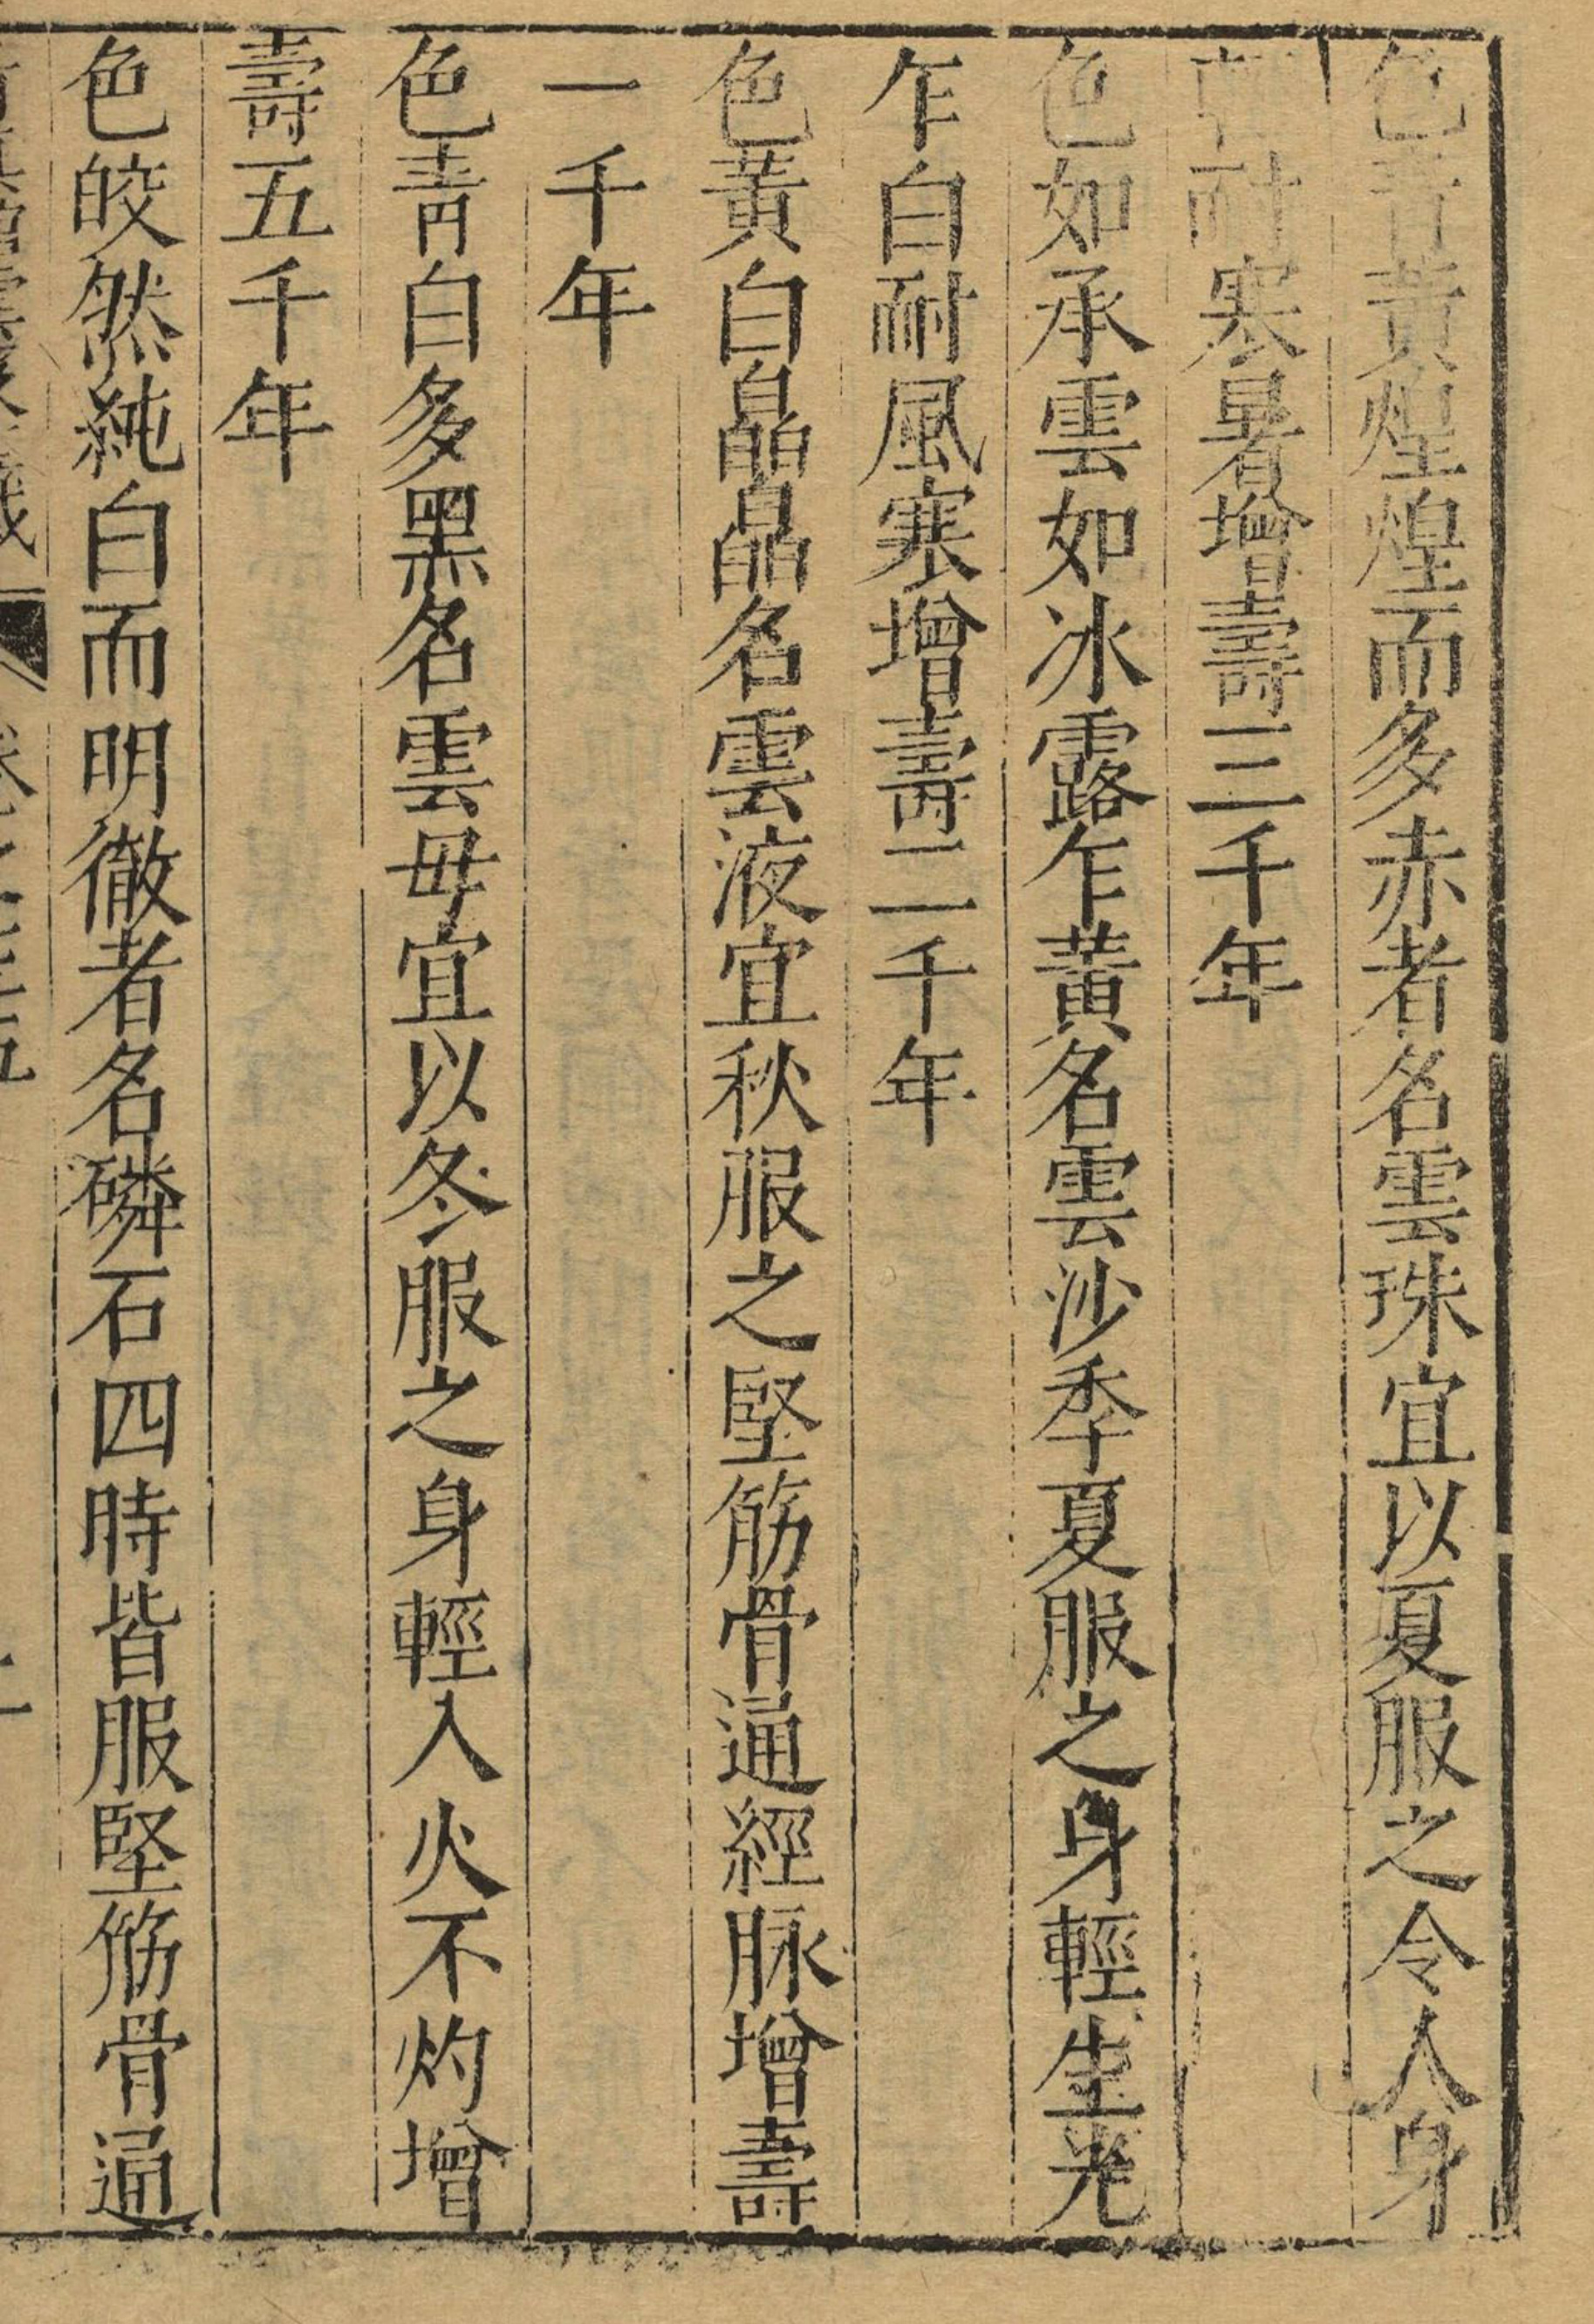 色青黃煌煌而多赤者名雲珠宜以夏服之令人身
輕耐寒暑增壽三千年
色如承雲如冰露乍黃名雲沙季夏服之身輕生光
乍白耐風寒增壽二千年
色黃白皛皛名雲液宜秋服之堅筋骨通經脉增壽
一千年
色青白多黑名雲毋宜以冬服之身輕入火不灼增
壽五千年
色皎然純白而明徹者名磷石四時皆服堅筋骨通